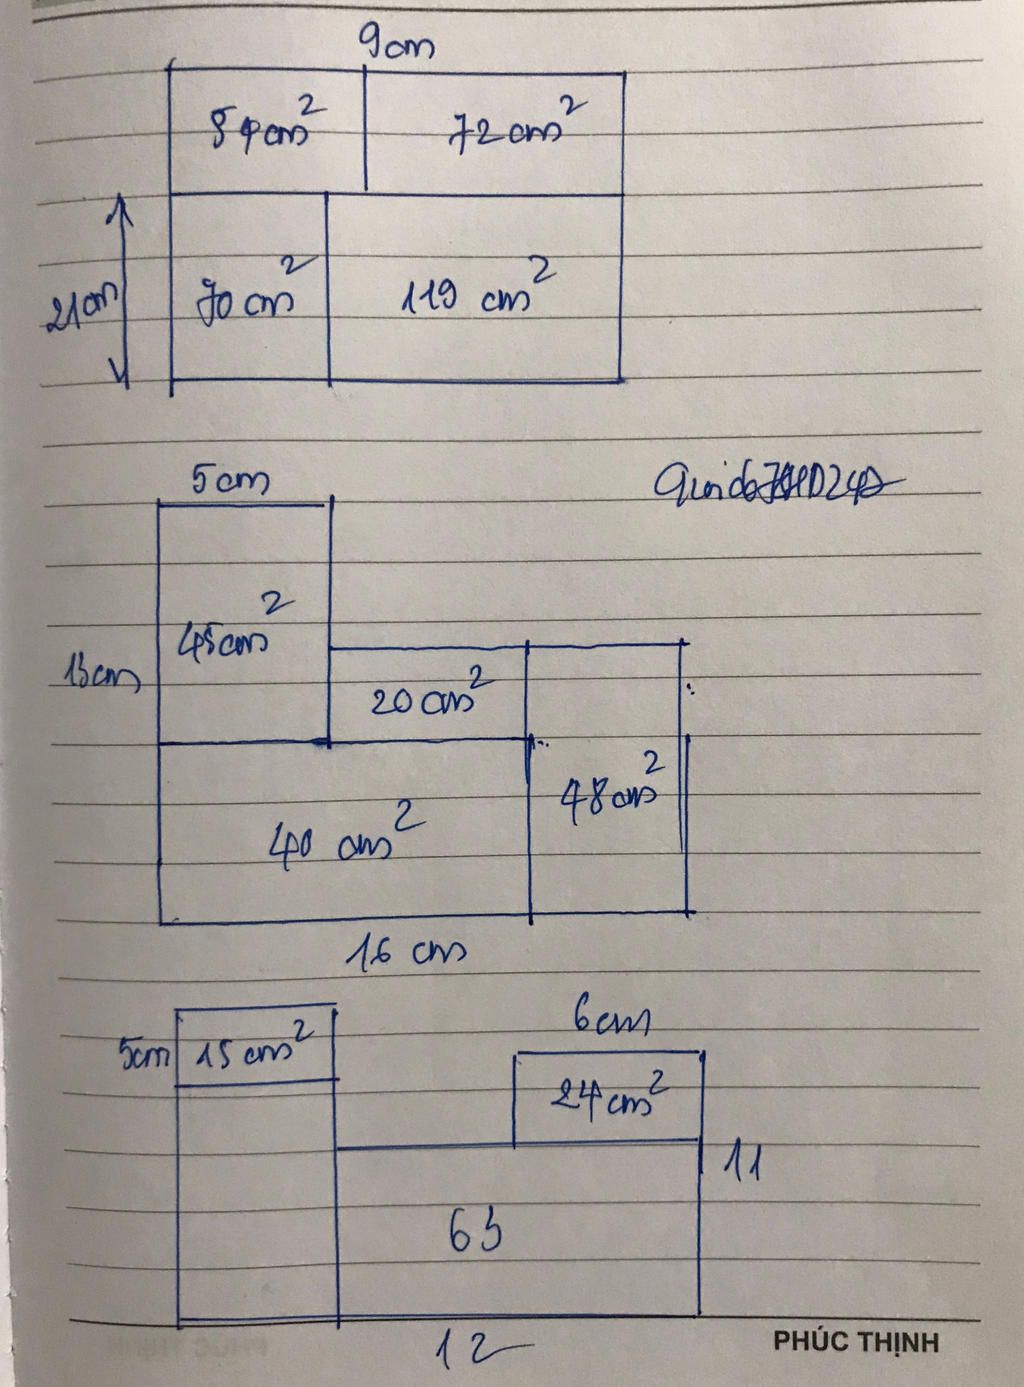 9cm
54cm² 72cm²
21cm 70cm² 119 cm²
5cm
45cm²
13cm
20cm²
48cm²
40 cm²
16 cm
6cm
5cm 15cm²
24cm²
11
63
12
PHÚC THỊNH